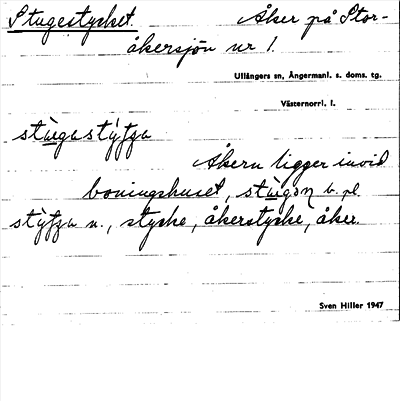 Stugestycket. Åker på Stor-
åkersjön nr 1.
Ullångers sn, Ångermanl. s. doms. tg.
Västernorrl. l.
stùgastýtza
Åkern ligger invid
boningshuset, stùgɔn b. pl.
stýtza n., stycke, åkerstycke, åker.
Sven Hiller 1947